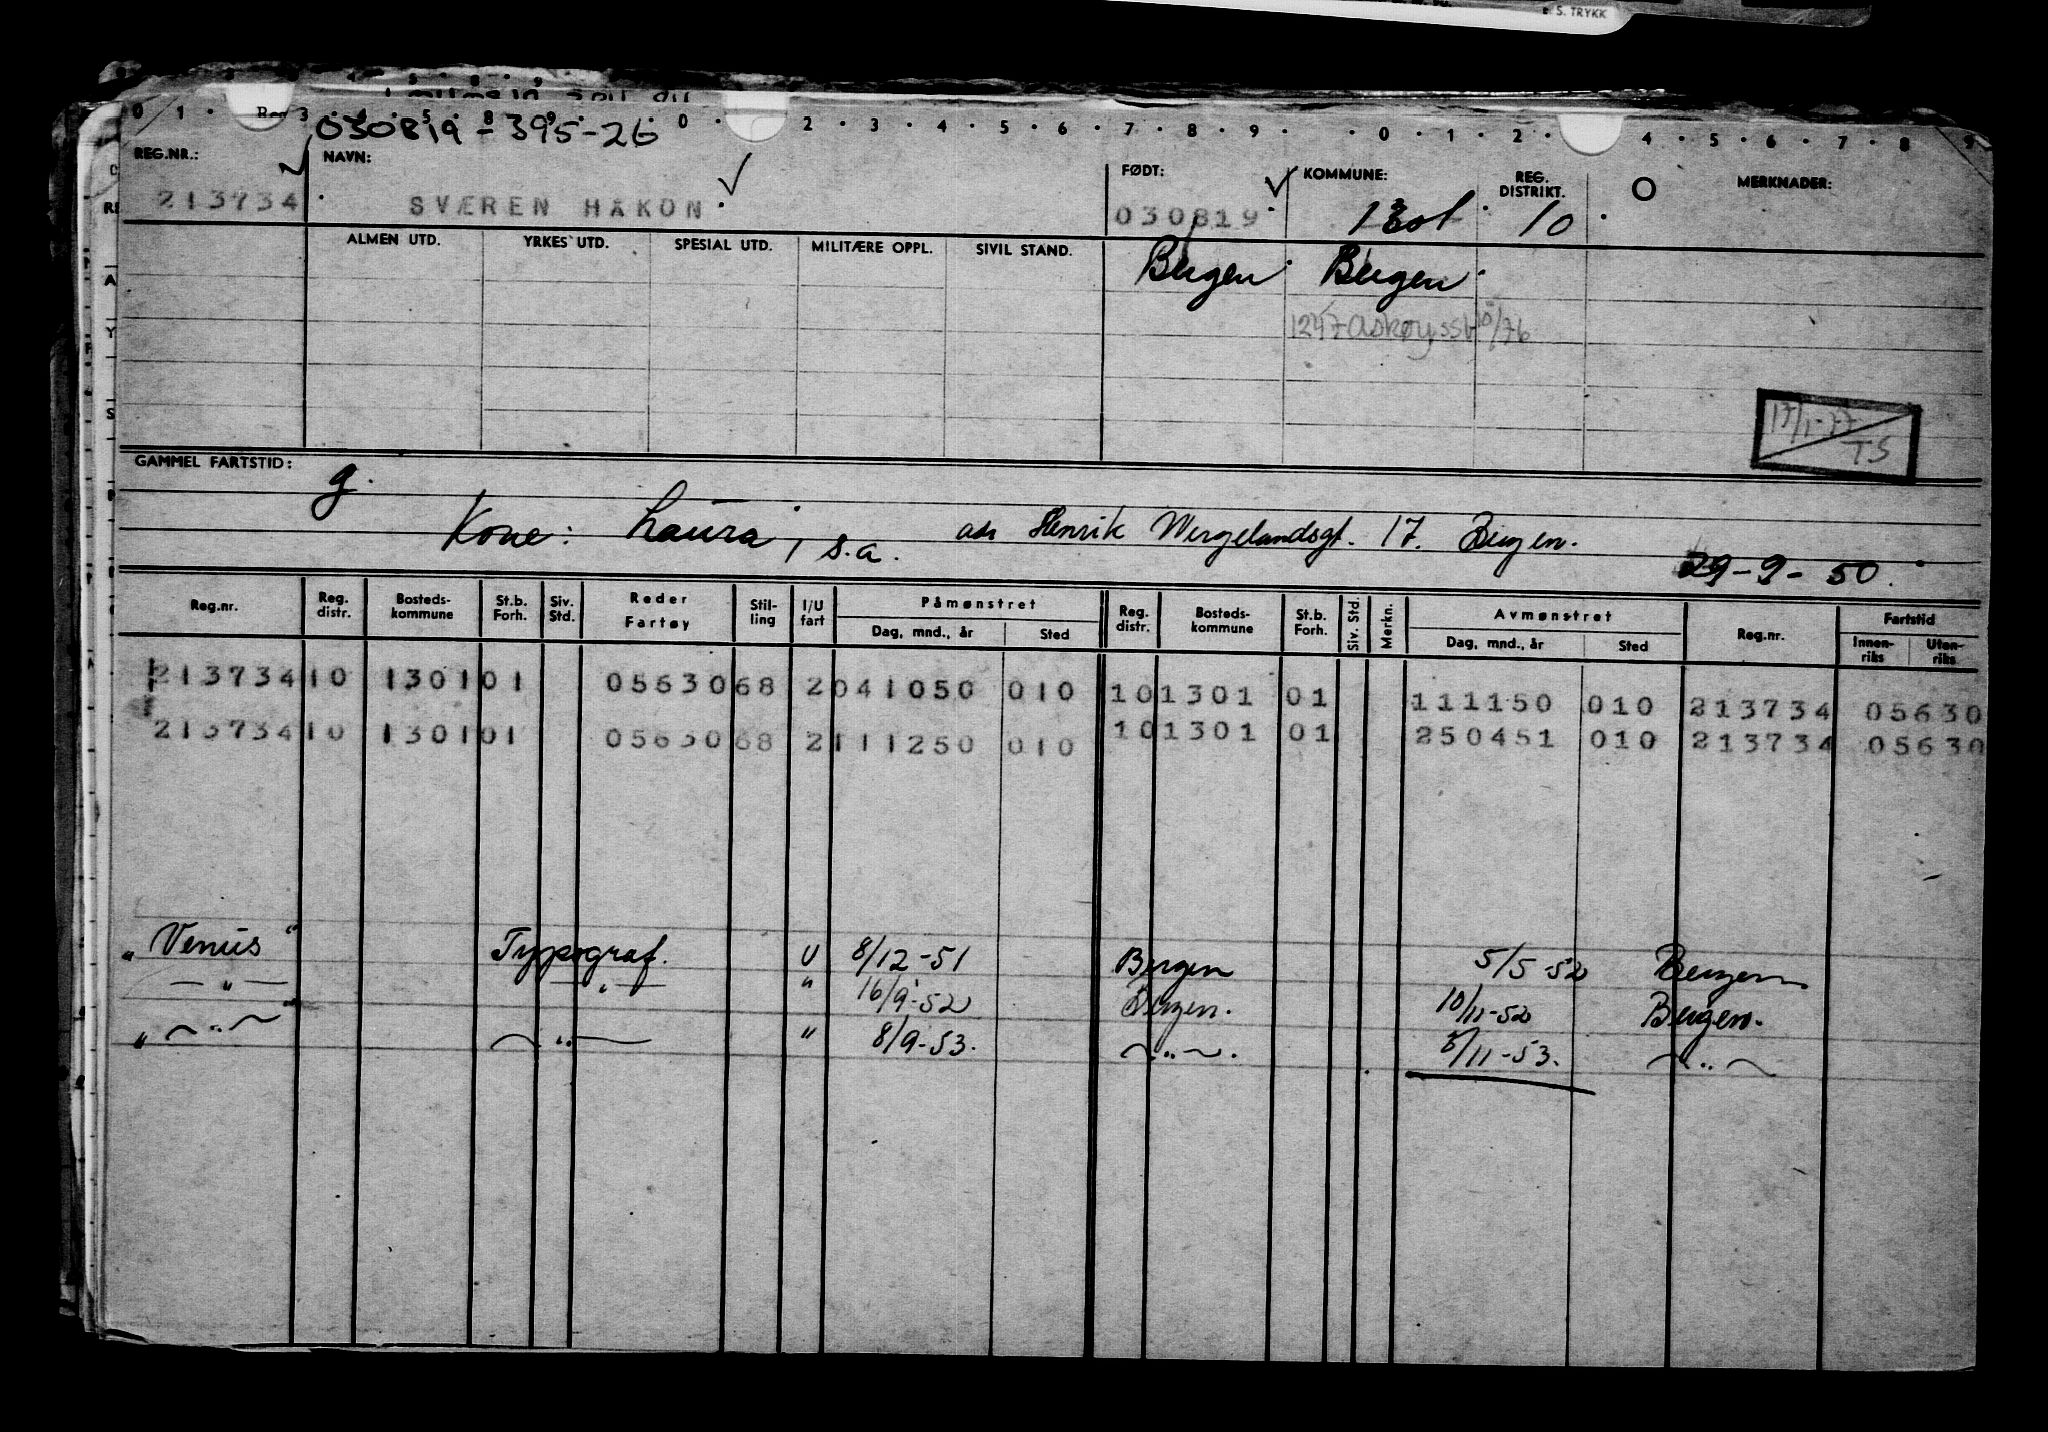 S. TRYKK
030819-395-26
REG.NR.: NAVN: FØDT: KOMMUNE: REG. DISTRIKT. O MERKNADER:
213734 SVÆREN HÅKON 030819 1301 10
ALMEN UTD. YRKES UTD. SPESIAL UTD. MILITÆRE OPPL. SIVIL STAND. Bergen Bergen
1247 Askøy 10/76
13/1-77
T.S
GAMMEL FARTSTID: g.
Kone: Laura, s.a. adr Henrik Wergelandsgt. 17. Bergen.
29-9-50.
Reg.nr. Reg. distr. Bosteds-kommune St.b. Forh. Siv. Std. Reder Fartøy Stil-ling I/U fart Påmønstret Reg. distr. Bosteds-kommune St.b. Forh. Siv. Std. Merkn. Avmønstret Reg.nr. Fartstid
Dag, mnd., år Sted Dag, mnd., år Sted Innen-riks Uten-riks
213734 10 1301 01 05630 68 2 041050 010 10 1301 01 111150 010 213734 05630
213734 10 1301 01 05630 68 2 111250 010 10 1301 01 250451 010 213734 05630
"Venus" Typograf. U 8/12-51 Bergen 5/5-52 Bergen
— " — — " — " 16/9-52 Bergen. 10/11-52 Bergen.
" — " — " — " — " 8/9-53. — " —. /11-53. — " —